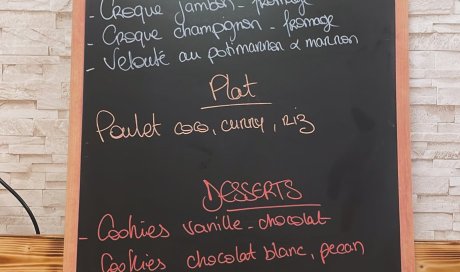 - Croque jambon - fromage
- Croque champignon - fromage
- Velouté au potimarron & marron
Plat
Poulet coco, curry, riz
DESSERTS
- Cookies vanille - chocolat
Cookies chocolat blanc, pecan